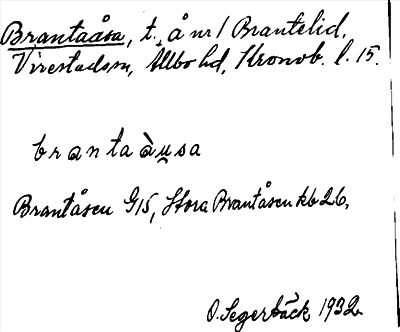 Brantaåsa, t. å nr 1 Brantelid,
Virestads sn, Allbo hd, Kronob. l. 15.
brantaàu̯sa
Brantåsen G15, Stora Brantåsen kb 26.
O. Segerbäck 1932.